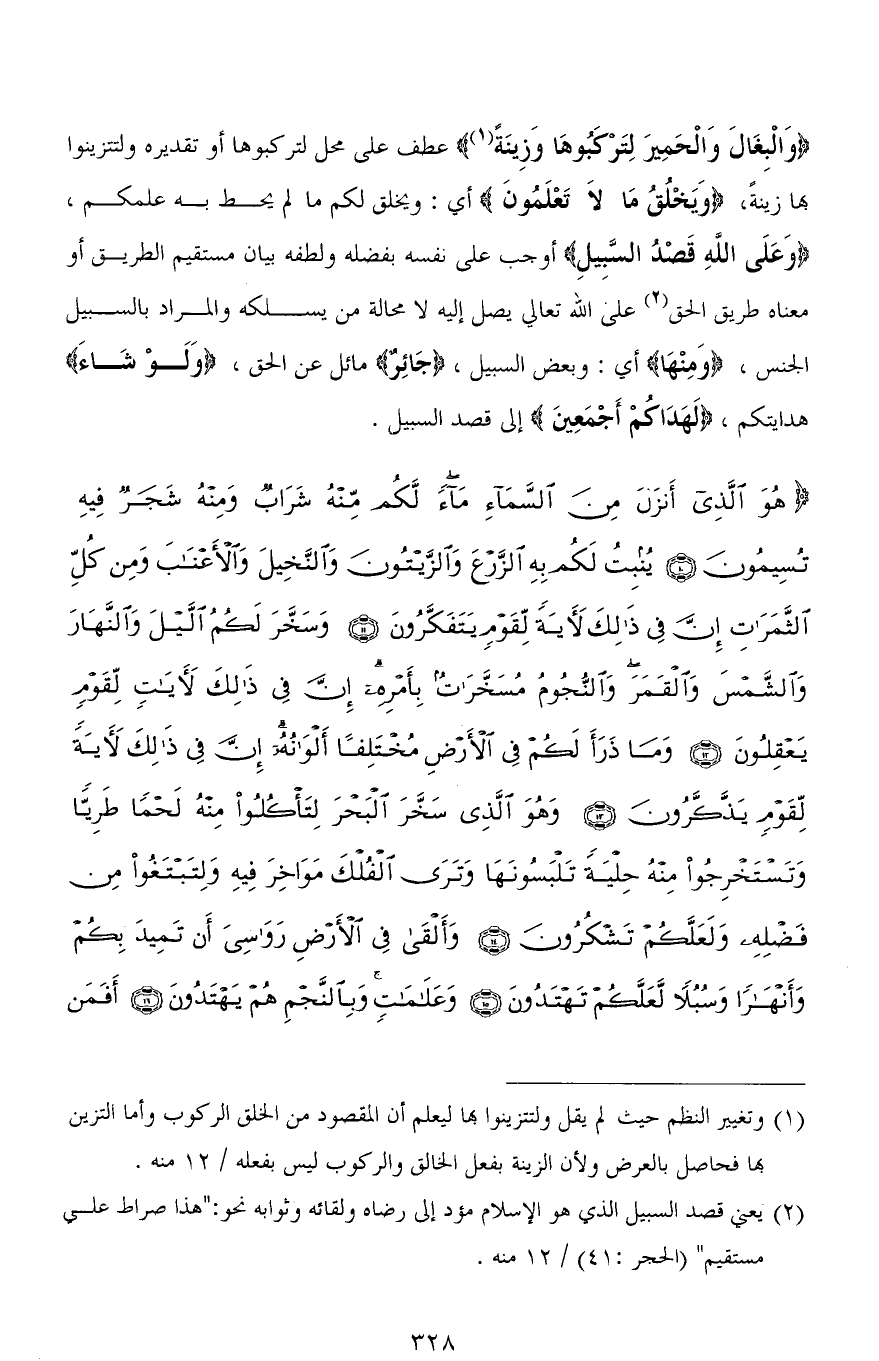 ﴿وَالْبِغَالَ وَالْحَمِيرَ لِتَرْكَبُوهَا وَزِينَةً(١)﴾ عطف على محل لتركبوها أو تقديره ولتتزينوا
بها زينةً، ﴿وَيَخْلُقُ مَا لاَ تَعْلَمُونَ﴾ أي : ويخلق لكم ما لم يحط به علمكم ،
﴿وَعَلَى اللَّهِ قَصْدُ السَّبِيلِ﴾ أوجب على نفسه بفضله ولطفه بيان مستقيم الطريق أو
معناه طريق الحق(٢) على الله تعالي يصل إليه لا محالة من يسلكه والمراد بالسبيل
الجنس ، ﴿وَمِنْهَا﴾ أي : وبعض السبيل ، ﴿جَائِرٌ﴾ مائل عن الحق ، ﴿وَلَوْ شَاءَ﴾
هدايتكم ، ﴿لَهَدَاكُمْ أَجْمَعِينَ﴾ إلى قصد السبيل .
﴿ هُوَ ٱلَّذِىٓ أَنزَلَ مِنَ ٱلسَّمَآءِ مَآءً ۖ لَّكُم مِّنْهُ شَرَابٌ وَمِنْهُ شَجَرٌ فِيهِ
تُسِيمُونَ ۝١٠ يُنۢبِتُ لَكُم بِهِ ٱلزَّرْعَ وَٱلزَّيْتُونَ وَٱلنَّخِيلَ وَٱلْأَعْنَـٰبَ وَمِن كُلِّ
ٱلثَّمَرَٰتِ إِنَّ فِى ذَٰلِكَ لَأَيَةً لِّقَوْمٍ يَتَفَكَّرُونَ ۝١١ وَسَخَّرَ لَكُمُ ٱلَّيْلَ وَٱلنَّهَارَ
وَٱلشَّمْسَ وَٱلْقَمَرَ ۖ وَٱلنُّجُومُ مُسَخَّرَٰتٌۢ بِأَمْرِهِۦٓ ۗ إِنَّ فِى ذَٰلِكَ لَأَيَـٰتٍ لِّقَوْمٍ
يَعْقِلُونَ ۝١٢ وَمَا ذَرَأَ لَكُمْ فِى ٱلْأَرْضِ مُخْتَلِفًا أَلْوَٰنُهُۥٓ ۗ إِنَّ فِى ذَٰلِكَ لَأَيَةً
لِّقَوْمٍ يَذَّكَّرُونَ ۝١٣ وَهُوَ ٱلَّذِى سَخَّرَ ٱلْبَحْرَ لِتَأْكُلُوا۟ مِنْهُ لَحْمًا طَرِيًّا
وَتَسْتَخْرِجُوا۟ مِنْهُ حِلْيَةً تَلْبَسُونَهَا وَتَرَى ٱلْفُلْكَ مَوَاخِرَ فِيهِ وَلِتَبْتَغُوا۟ مِن
فَضْلِهِۦ وَلَعَلَّكُمْ تَشْكُرُونَ ۝١٤ وَأَلْقَىٰ فِى ٱلْأَرْضِ رَوَٰسِىَ أَن تَمِيدَ بِكُمْ
وَأَنْهَـٰرًا وَسُبُلًا لَّعَلَّكُمْ تَهْتَدُونَ ۝١٥ وَعَلَـٰمَـٰتٍ ۚ وَبِٱلنَّجْمِ هُمْ يَهْتَدُونَ ۝١٦ أَفَمَن
(١) وتغيير النظم حيث لم يقل ولتتزينوا بها ليعلم أن المقصود من الخلق الركوب وأما التزين
بها فحاصل بالعرض ولأن الزينة بفعل الخالق والركوب ليس بفعله / ١٢ منه .
(٢) يعني قصد السبيل الذي هو الإسلام مؤد إلى رضاه ولقائه وثوابه نحو:"هذا صراط علي
مستقيم" (الحجر :٤١) / ١٢ منه .
٣٢٨